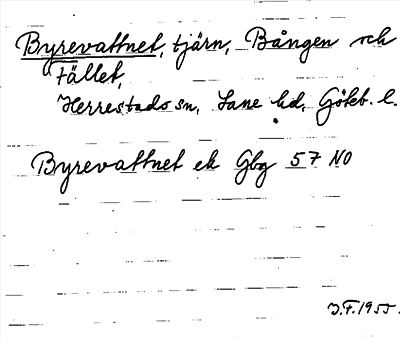 Byrevattnet, tjärn, Bången och
Fället,
Herrestads sn, Lane hd, Göteb. l.
Byrevattnet ek Gbg 57 NO
J.F. 1955.